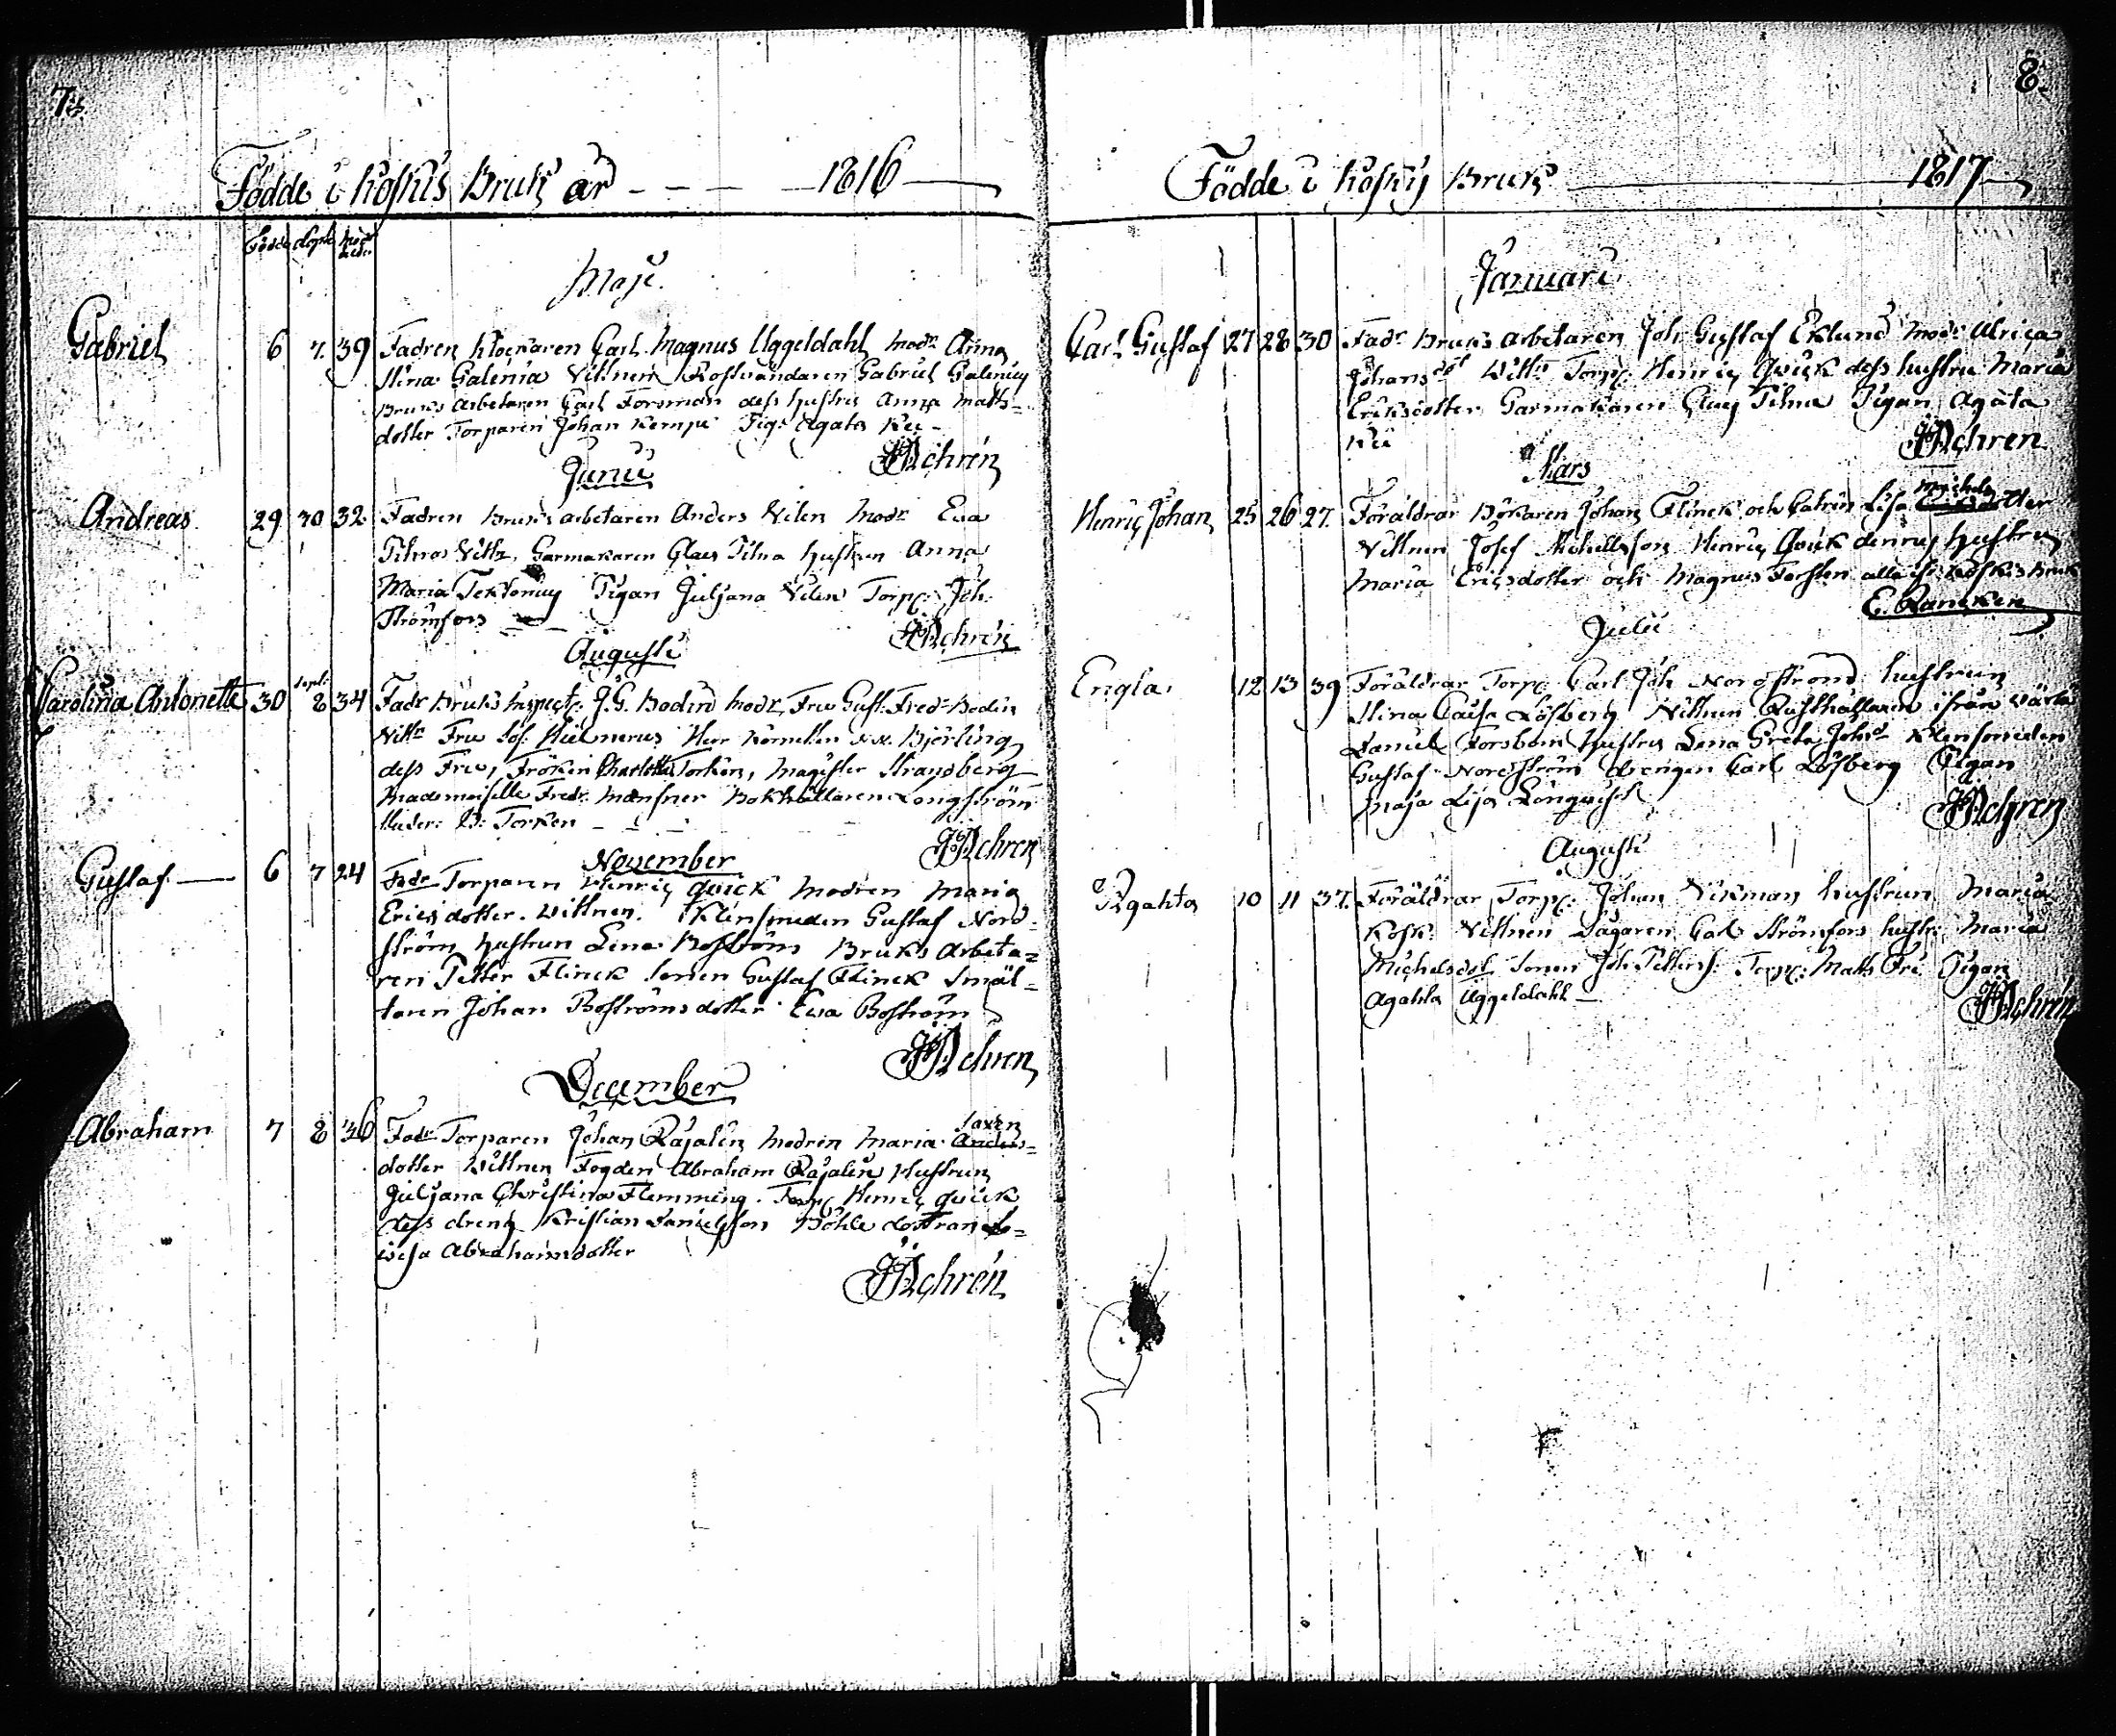 7.
Födde i Koskis Bruk år - - - - 1816
Födde döpte modr ålder
Maji.
Gabriel 6 7. 39 Fadren Klockaren Carl Magnus Uggeldahl modr Anna
Stina Galenia Vittnen Rostvändaren Gabriel Galenius
Bruks Arbetaren Carl Forsman dess hustru Anna Matts=
dotter Torparen Johan Kempi Pig: Agata
Junii
JPchrén
Andreas 29 30 32 Fadren Bruks arbetaren Anders Vilen Modr Eva
Tilnas Vittn. Garmakaren Claes Tilna hustrun Anna
Maria Tektonius Pigan Juljana Vilen Torp: Joh.
Strömfors
Augusti
Carolina Antonette 30 sept: 8 34 Fadr Bruks Inspect: J.G. Bodin modr, Fru Gust: Fred: Bodin
Vittn Fru Sof. Herr N.N. Björling
dess Fru, Fröken Charlotta Torken, Magister Strandberg
Mademoiselle Fredr. Bokhållaren Longström
Studer: B: Torken
November
Gustaf. 6 7 24 Fadr Torparen Henric Qvick modren Maria
Erics dotter. Vittnen. Klensmeden Gustaf Nord=
ström hustrun Lena Boström Bruks Arbeta=
ren Petter Flinck sonen Gustaf Flinck Smäl=
taren Johan Boströms dotter Eva Boström
December
Abraham 7 8 36 Fadr Torparen Johan Rajalin modren Maria Anders= Saxen
dotter Vittnen Fogden Abraham Rajalin Hustrun
Juljana Christina Flemming. Torp: Henric Qvick
dess dreng Kristian Danielsson Böhle dottran Lo=
visa Abrahamsdotter
8.
Födde i Koskis Bruk 1817
Januari
Carl Gustaf 27 28 30 Fadr Bruks arbetaren Joh Gustaf Eklund modr Ulrica
Johansdot Vittn Torp: Henric Qvick dess hustru Maria
Ericsdotter Garmakaren Claes Tilna Pigan Agata
Mars
Henric Johan 25 26 27. Föräldrar Johan Flinck och Catrin Lisa Michelsdotter
Vittnen Josef Michellsson Henric Qvick dennes hustru
Maria Ericsdotter och Magnus Forsten alla ifr: Koskis Bruk
Julii
Engla. 12 13 39 Föräldrar Torp: Carl Joh Nordström hustrun
Stina Caisa Löfberg Vittnen Rusthållaren ifrån
Daniel Forsbom hustru Lena Greta Johsd Klensmeden
Gustaf Nordström drengen Carl Löfberg Pigan
Maja Lisa Löngqvist
Augusti
Agahta 10 11 37. Föräldrar Torp: Johan Vikman hustrun Maria
Kosk. Vittnen Sågaren Carl Strömfors hustr: Maria
Michelsdot Sonen Joh Petterss: Torp: Matts Fri Pigan
Agahta Uggeldahl